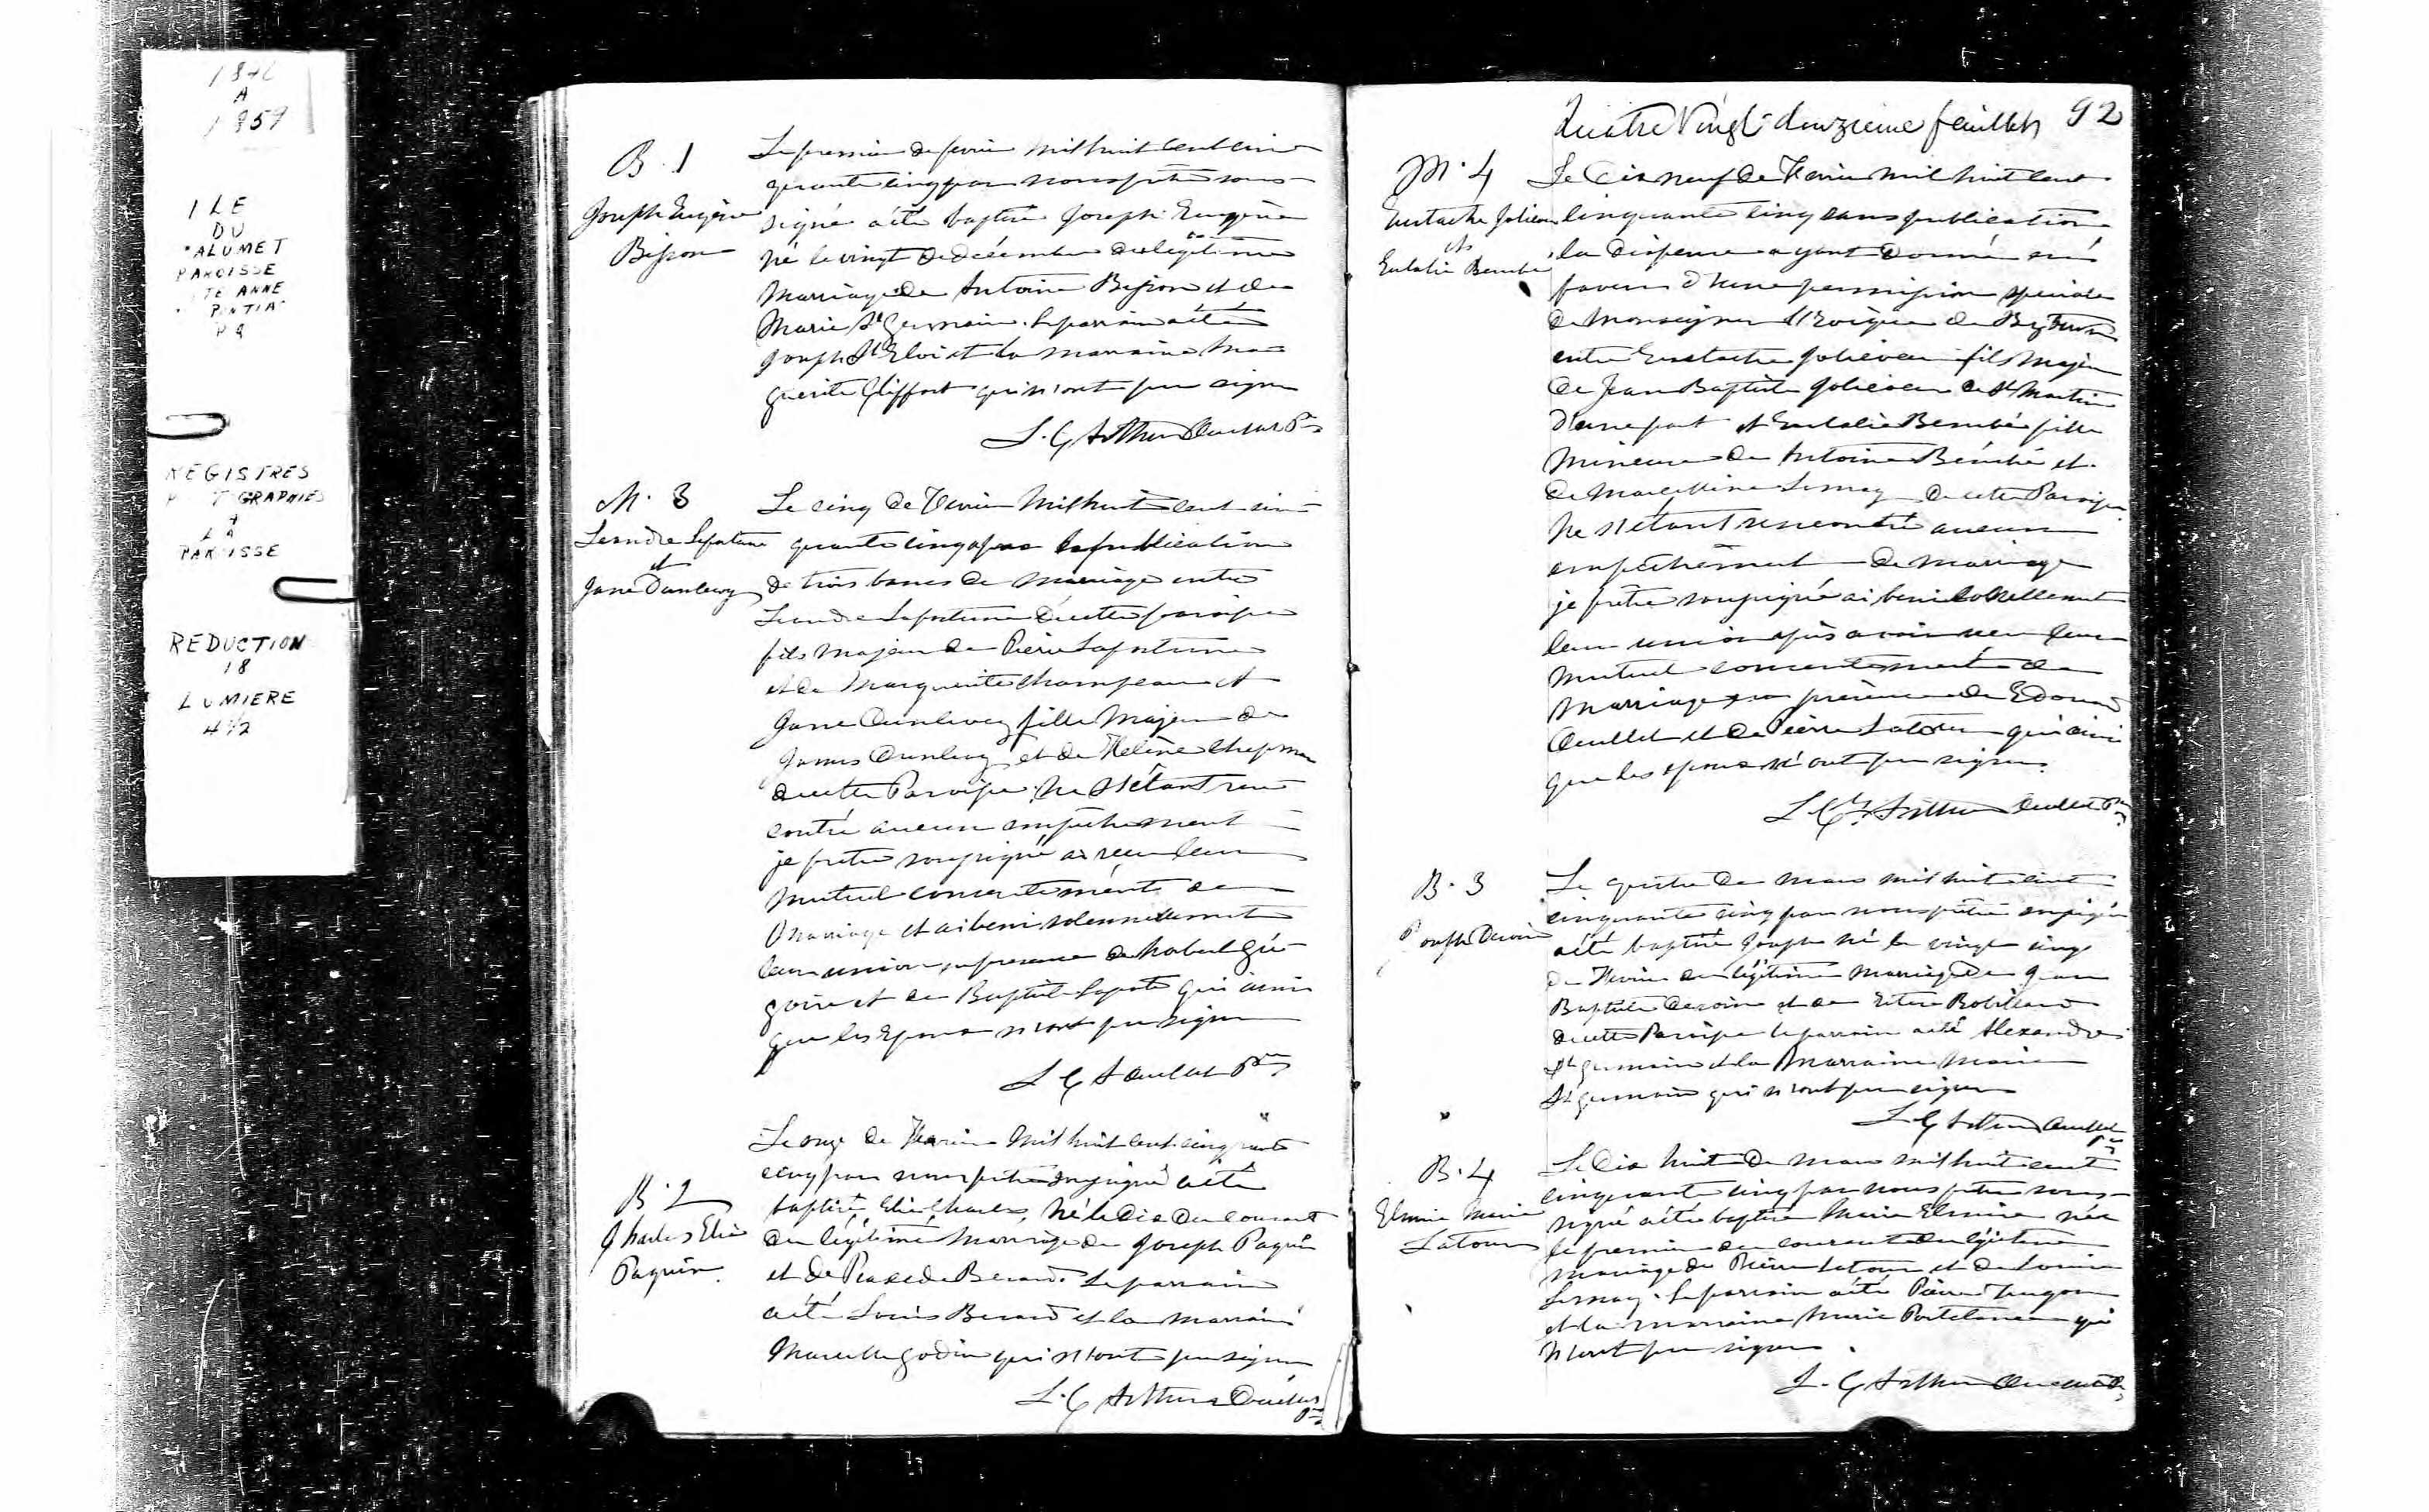 1846
A
1859
ILE
DU
CALUMET
PAROISSE
STE ANNE
PONTIAC
P Q
REGISTRES
PHOTOGRAPHIES
A
LA
PAROISSE
REDUCTION
18
LUMIERE
4 1/2
B. 1
Joseph Eugène
Bisson
Le premier de fevrier mil huit cent cin-
quante cinq par nous prêtre sous-
signé a été baptisé Joseph Eugène
né le vingt de décembre du légitime
mariage de Antoine Bisson et de
Marie St Germain. Le parrain a été
Joseph St Eloi et la marraine Mar
guerite Gliffort qui n'ont pu signer
L. G Arthur Ouellet Ptre
M. 3
Leandre Lafortune
et
Jane Dunlevy
Le cinq de Fevrier mil huit cent cin-
quante cinq après la publication
de trois bancs de mariage entre
Leandre Lafortune de cette paroisse
fils majeur de Pierre Lafortune
et de Marguerite Champeau et
Jane Dunlevy fille majeure de
James Dunlevy et de Helène Chapman
de cette Paroisse. Ne s'étant ren
contré aucun empêchement
je prêtre soussigné ai reçu leur
mutuel consentement de
mariage et ai beni solennellement
leur union en presence de Gré
goire et de Baptiste Laporte qui ainsi
que les Epoux n'ont pu signer
L G A Ouellet Ptre
B. 2
Charles Elie
Paquin.
Le onze de Fevrier mil huit cent cinquante
cinq par nous prêtre soussigné a été
baptisé Elie Charles, né le dix du courant
du légitime mariage de Joseph Paquin
et de Praxede Berard. Le parrain
a été Louis Berard et la marraine
Marcelle Godin qui n'ont pu signer
L. G Arthur Ouellet
Ptre
Quatre Vingt-douzieme feuillet 92
M. 4
Eustache Jolicoeur
et
Eulalie Berubé
Le Dix neuf de Fevrier mil huit cent
cinquante cinq sans publication
la dispense ayant donné en
faveur d'une permission speciale
de Monseigneur l'Evêque de Bytown
entre Eustache Jolicoeur fils majeur
de Jean Baptiste Jolicoeur de St Martin
d'une part et Eulalie Berubé fille
mineure de Antoine Bérubé et
de Marcelline Lemay de cette Paroisse
Ne s'étant rencontré aucun
empêchement de mariage
je prêtre soussigné ai beni solennellement
leur union après avoir reçu leur
mutuel consentement de
mariage en présence de Edouard
Ouellet et de Pierre Latour qui ainsi
que les epoux n'ont pu signer.
L G Arthur Ouellet Ptre
B. 3
Joseph Deroin
Le quatre de mars mil huit cent
cinquante cinq par nous prêtre soussigné
a été baptisé Joseph né le vingt cinq
de Fevrier du légitime mariage de Jean
Baptiste Deroin et de Ester Robillard
de cette Paroisse le parrain a été Alexandre
St Germain et la Marraine Marie
St Germain qui n'ont pu signer
L G Arthur Ouellet
Ptre
B. 4
Elmire Marie
Latour
Le dix huit de mars mil huit cent
cinquante cinq par nous prêtre sous-
signé a été baptisée Marie Elmire née
le premier du courant du légitime
mariage de Pierre Latour et de Louise
Lemay. Le parrain a été Pierre
et la marraine Marie Portelance qui
n'ont pu signer.
L. G Arthur Ouellet Ptre